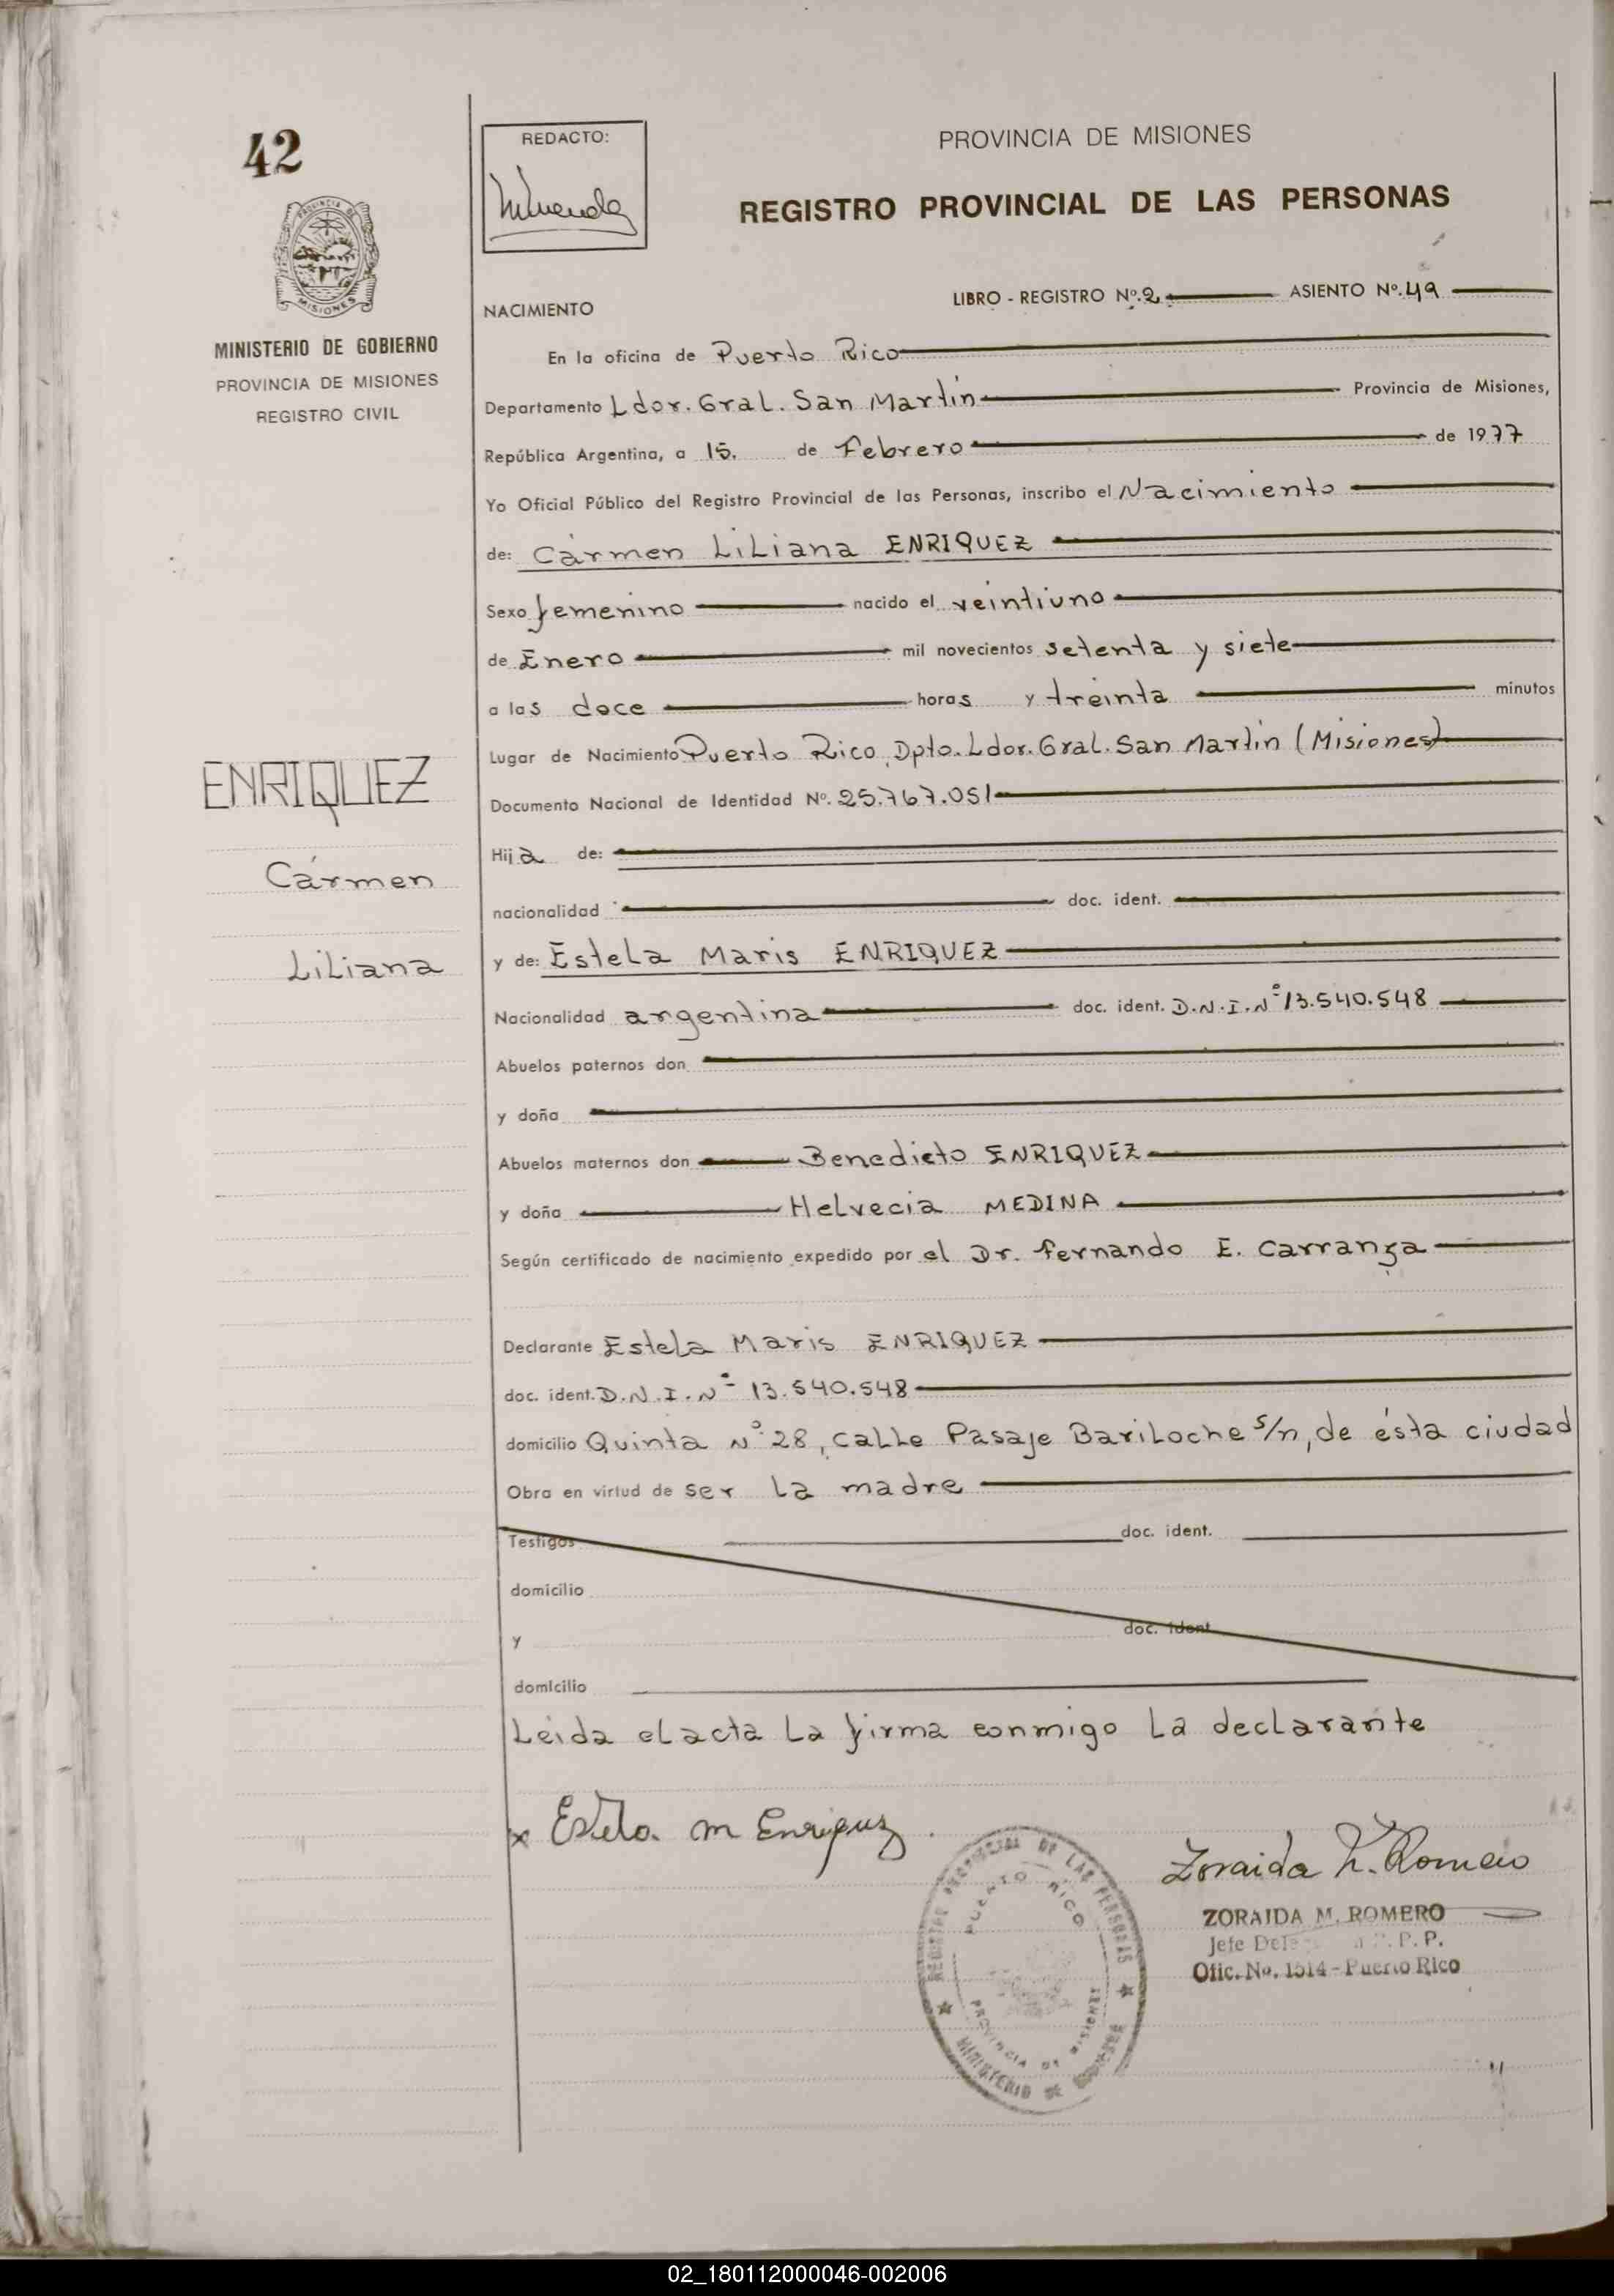 42
PROVINCIA DE MISIONES
MINISTERIO DE GOBIERNO
PROVINCIA DE MISIONES
REGISTRO CIVIL
REDACTO:
PROVINCIA DE MISIONES
REGISTRO PROVINCIAL DE LAS PERSONAS
LIBRO - REGISTRO Nº. 2 ASIENTO Nº. 49
NACIMIENTO
En la oficina de Puerto Rico
Departamento Ldor. Gral. San Martin Provincia de Misiones,
República Argentina, a 15. de Febrero de 1977
Yo Oficial Público del Registro Provincial de las Personas, inscribo el Nacimiento
de: Cármen Liliana ENRIQUEZ
Sexo femenino nacido el veintiuno
de Enero mil novecientos setenta y siete
a las doce horas y treinta minutos
Lugar de Nacimiento Puerto Rico, Dpto. Ldor. Gral. San Martin (Misiones)
Documento Nacional de Identidad Nº. 25.767.051
Hija de:
nacionalidad doc. ident.
y de: Estela Maris ENRIQUEZ
Nacionalidad argentina doc. ident. D.N.I.Nº 13.540.548
Abuelos paternos don
y doña
Abuelos maternos don Benedicto ENRIQUEZ
y doña Helvecia MEDINA
Según certificado de nacimiento expedido por el Dr. Fernando E. Carranza
Declarante Estela Maris ENRIQUEZ
doc. ident. D.N.I.Nº 13.540.548
domicilio Quinta Nº 28, calle Pasaje Bariloche s/n, de ésta ciudad
Obra en virtud de ser la madre
Testigos doc. ident.
domicilio
y doc. ident.
domicilio
Leida el acta la firma conmigo la declarante
x Estela M Enriquez
Zoraida M. Romero
ZORAIDA M. ROMERO
Jefe R.P.P.
Ofic. No. 1514 - Puerto Rico
REGISTRO PROVINCIAL DE LAS PERSONAS
PUERTO RICO
PROVINCIA DE MISIONES
MINISTERIO DE GOBIERNO
ENRIQUEZ
Cármen
Liliana
02_180112000046-002006